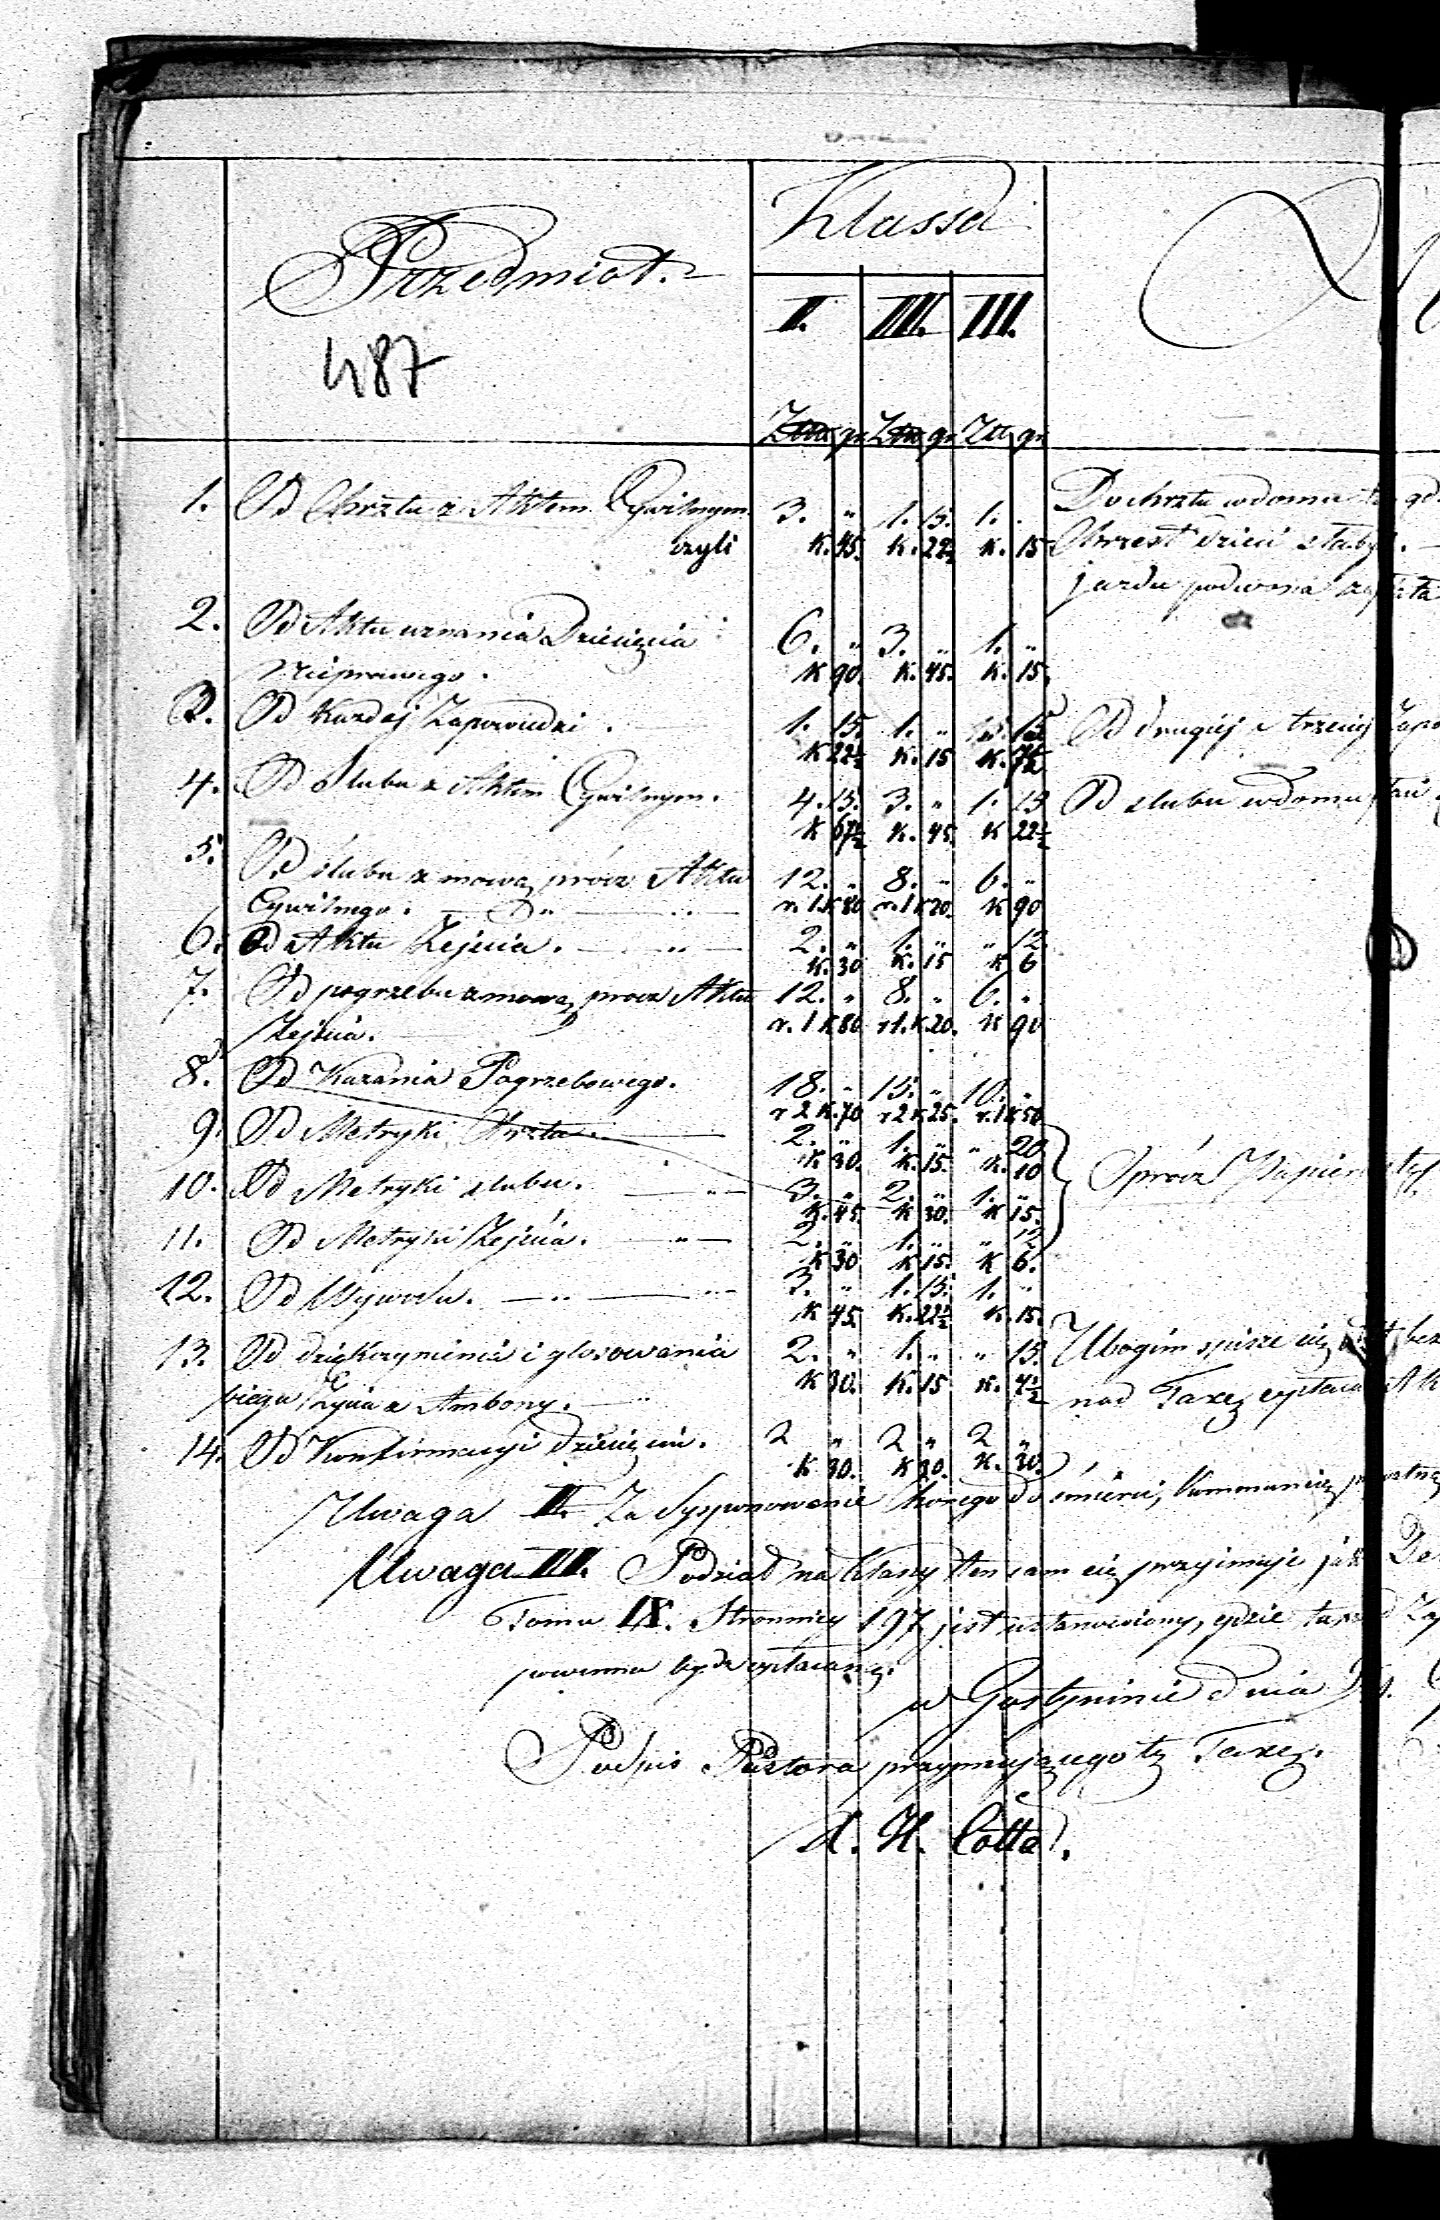 Przedmiot.
Klassa
487
I. II. III.
Złt gr. Złt gr. Złt gr.
1. Od Chrztu z Aktem Cywilnym 3. " 1. 15. 1. . Do chrztu w domu
czyli K. 45. K. 22½ K. 15 Chrzest dzieci słabych. —
jazdu podwoda
2. Od Aktu uznania Dziecięcia 6. " 3. " 1. "
Nieprawego. K 90. K. 45. K. 15.
3. Od Każdej Zapowiedzi. 1. 15. 1. " " 15 Od drugiej i trzeciej
K 22½ K. 15 K. 7½
4. Od Slubu z Aktem Cywilnym. 4. 15. 3. " 1. 15 Od slubu w domu
K 67½ K. 45. K 22½
5. Od slubu z mową prócz Aktu 12. " 8. " 6. "
Cywilnego. r. 1. K 80 r. 1 K 20. K 90
6. Od Aktu Zejscia. 2. " 1. " " 12.
K. 30 K. 15 K 6
7. Od pogrzebu z mową, procz Aktu 12. " 8. " 6. "
Zejscia. r. 1 K 80 r 1. K. 20. K 90
8. Od Kazania Pogrzebowego. 18. " 15. " 10. "
r 2 K. 70 r 2 K 25. r. 1 K 50
9. Od Metryki Chrztu. 2. " 1. " " 20
K 30. K. 15. K. 10
10. Od Metryki slubu. 3. " 2. " 1. " Oprócz Papieru
K. 45. K 30. K 15.
11. Od Metryki Zejścia. 2. " 1. " " 12
K 30 K 15. K 6.
12. Od Wywodu. 3. " 1. 15. 1. "
K 45. K. 22½ K. 15.
13. Od dziękczynienia i głosowania 2. " 1. " " 15. Ubogim
biegu Życia z Ambony. K 30. K. 15 K. 7½ nad Taxę
14. Od Konfirmacyi dziecięcia. 2 " 2 " 2 "
K 30. K 30. K. 30.
Uwaga II. Za dysponowanie chorego do śmierci,
Uwaga III. Podział na Klassy ten sam się przyimuje jak
Tomu IX. Stronnicy 197 jest ustanowiony, gdzie
powinna bydz opłacaną.
w Gostyninie dnia
Podpis Pastora przyjmującego tę Taxę.
A. H. Cotta.